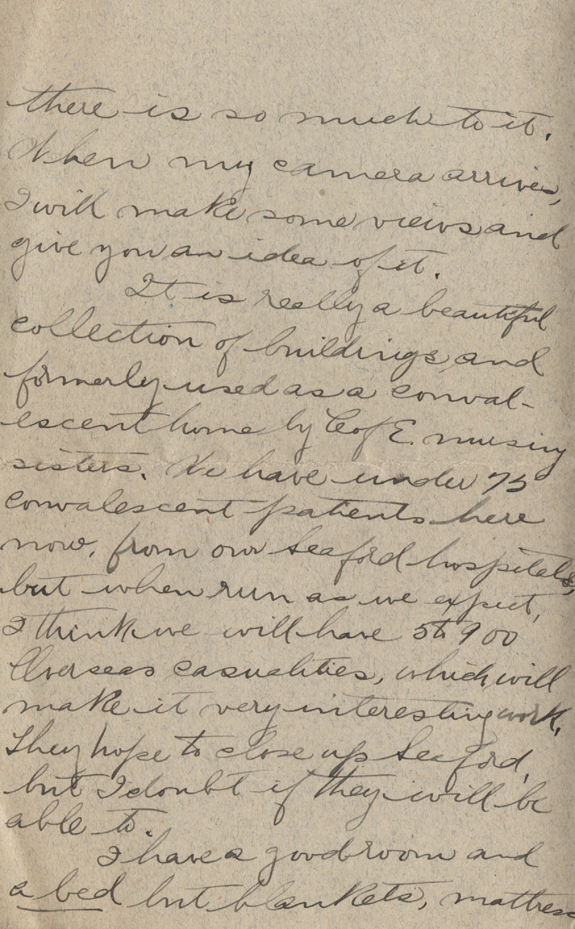 there is so much to it.
When my camera arrives,
I will make some views and
give you an idea of it.
It is really a beautiful
collection of buildings, and
formerly used as a conval-
escent home by C of E. nursing
sisters. We have under 75
convalescent patients here
now, from our Seaford hospitals,
but when run as we expect,
I think we will have 900
Overseas casualities, which will
make it very interesting work.
They hope to close up Seaford,
but I doubt if they will be
able to.
I have a good room and
a bed but blankets, mattress